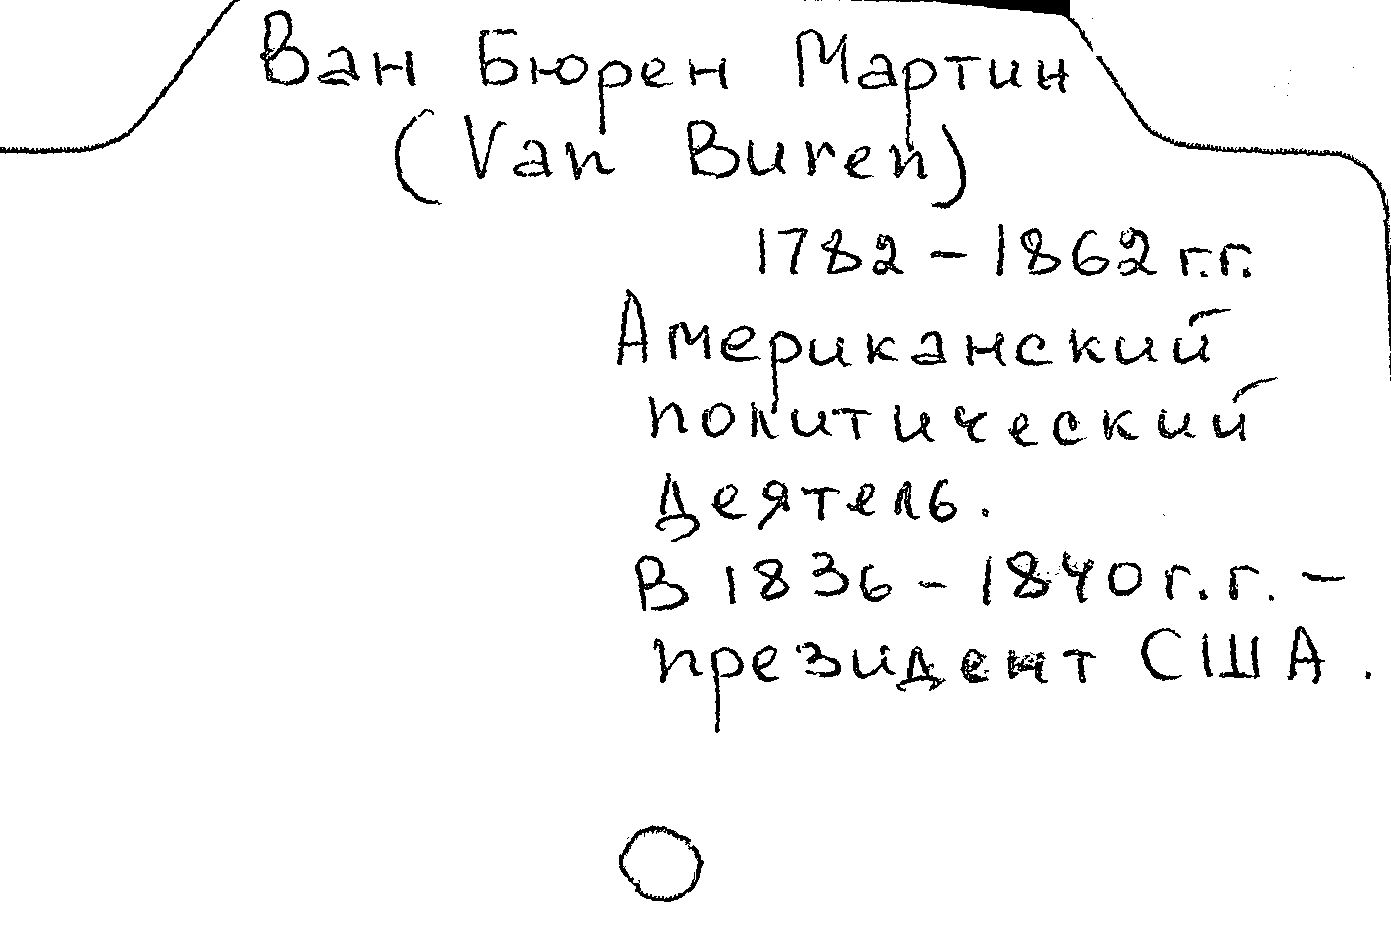 Ван Бюрен Мартин
(Van Buren)
1782 - 1862 г.г.
Американский
политический
деятель.
В 1836 - 1840 г.г. -
президент США.